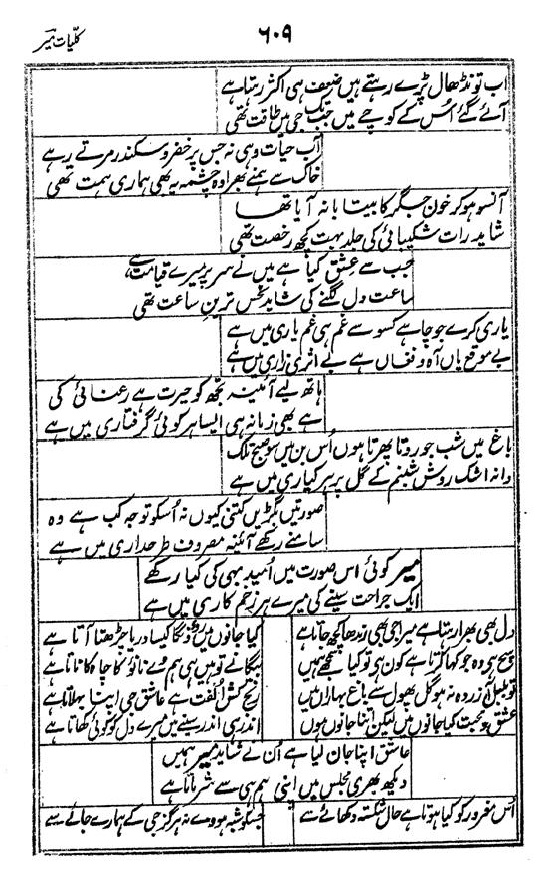 کلیات میر
۶۰۹
اب تو نڈھال پڑے رہتے ہیں ضعف ہی اکثر رہتا ہے
آئے گئے اُس کے کوچے میں جب تک جی میں طاقت تھی
آب حیات وہی نہ جس پر خضر و سکندر مرتے رہے
خاک سے ہمنے بھرا وہ چشمہ یہ بھی ہماری ہمت تھی
آنسو ہو کر خون جگر کا بیتابانہ آیا تھا
شاید رات شکیبائی کی جلد بہت کچھ رخصت تھی
جب سے عشق کیا ہے میں نے سر پر میرے قیامت ہے
ساعت دل لگنے کی شاید نحس ترین ساعت تھی
یاری کرے جو چاہے کسو سے غم ہی غم یاری میں ہے
بے موقع یاں آہ و فغاں ہے بے اثری زاری میں ہے
ہاتھ لیے آئینہ تجھ کو حیرت ہے رعنائی کی
ہے بھی زمانہ ہی ایسا ہر کوئی گرفتاری میں ہے
باغ میں شب جو روتا پھرتا ہوں اُس بن میں سو صبح تلک
دانۂ اشک روش شبنم کے گل پر ہر کیاری میں ہے
صورتیں بگڑیں کتنی کیوں نہ اُسکو توجہ کب ہے وہ
سامنے رکھے آئینہ مصروف طرحداری میں ہے
میر کوئی اس صورت میں اُمید بہی کی کیا رکھے
ایک جراحت سینے کی میرے ہر زخم کاری میں ہے
دل بھی بھرا رہتا ہے میرا جی بھی رندھا کچھ جاتا ہے کیا جانوں میں روؤنگا کیسا دریا چڑھتا آتا ہے
سچ ہی وہ جو کہا کرتا ہے کون ہی تو کیا سمجھے ہمیں بیگانے تو ہیں ہی ہم وے ناؤں کا چاہ کا ناتا ہے
تو بلبل آزردہ نہ ہو گل پھول سے باغ بہاراں میں رنج کش اُلفت ہے عاشق جی اپنا بہلاتا ہے
عشق و محبت کیا جانوں میں لیکن اتنا جانوں ہوں اندر ہی اندر سینے میں میرے دل کو کوئی کھاتا ہے
عاشق اپنا جان لیا ہے اُن نے شاید میر ہمیں
دیکھ بھری مجلس میں اپنی ہم ہی سے شرماتا ہے
اُس مغرور کو کیا ہوتا ہے حال شکستہ دکھائے سے جسکو شبہ ہووے نہ ہرگز جی کے ہمارے جائے سے